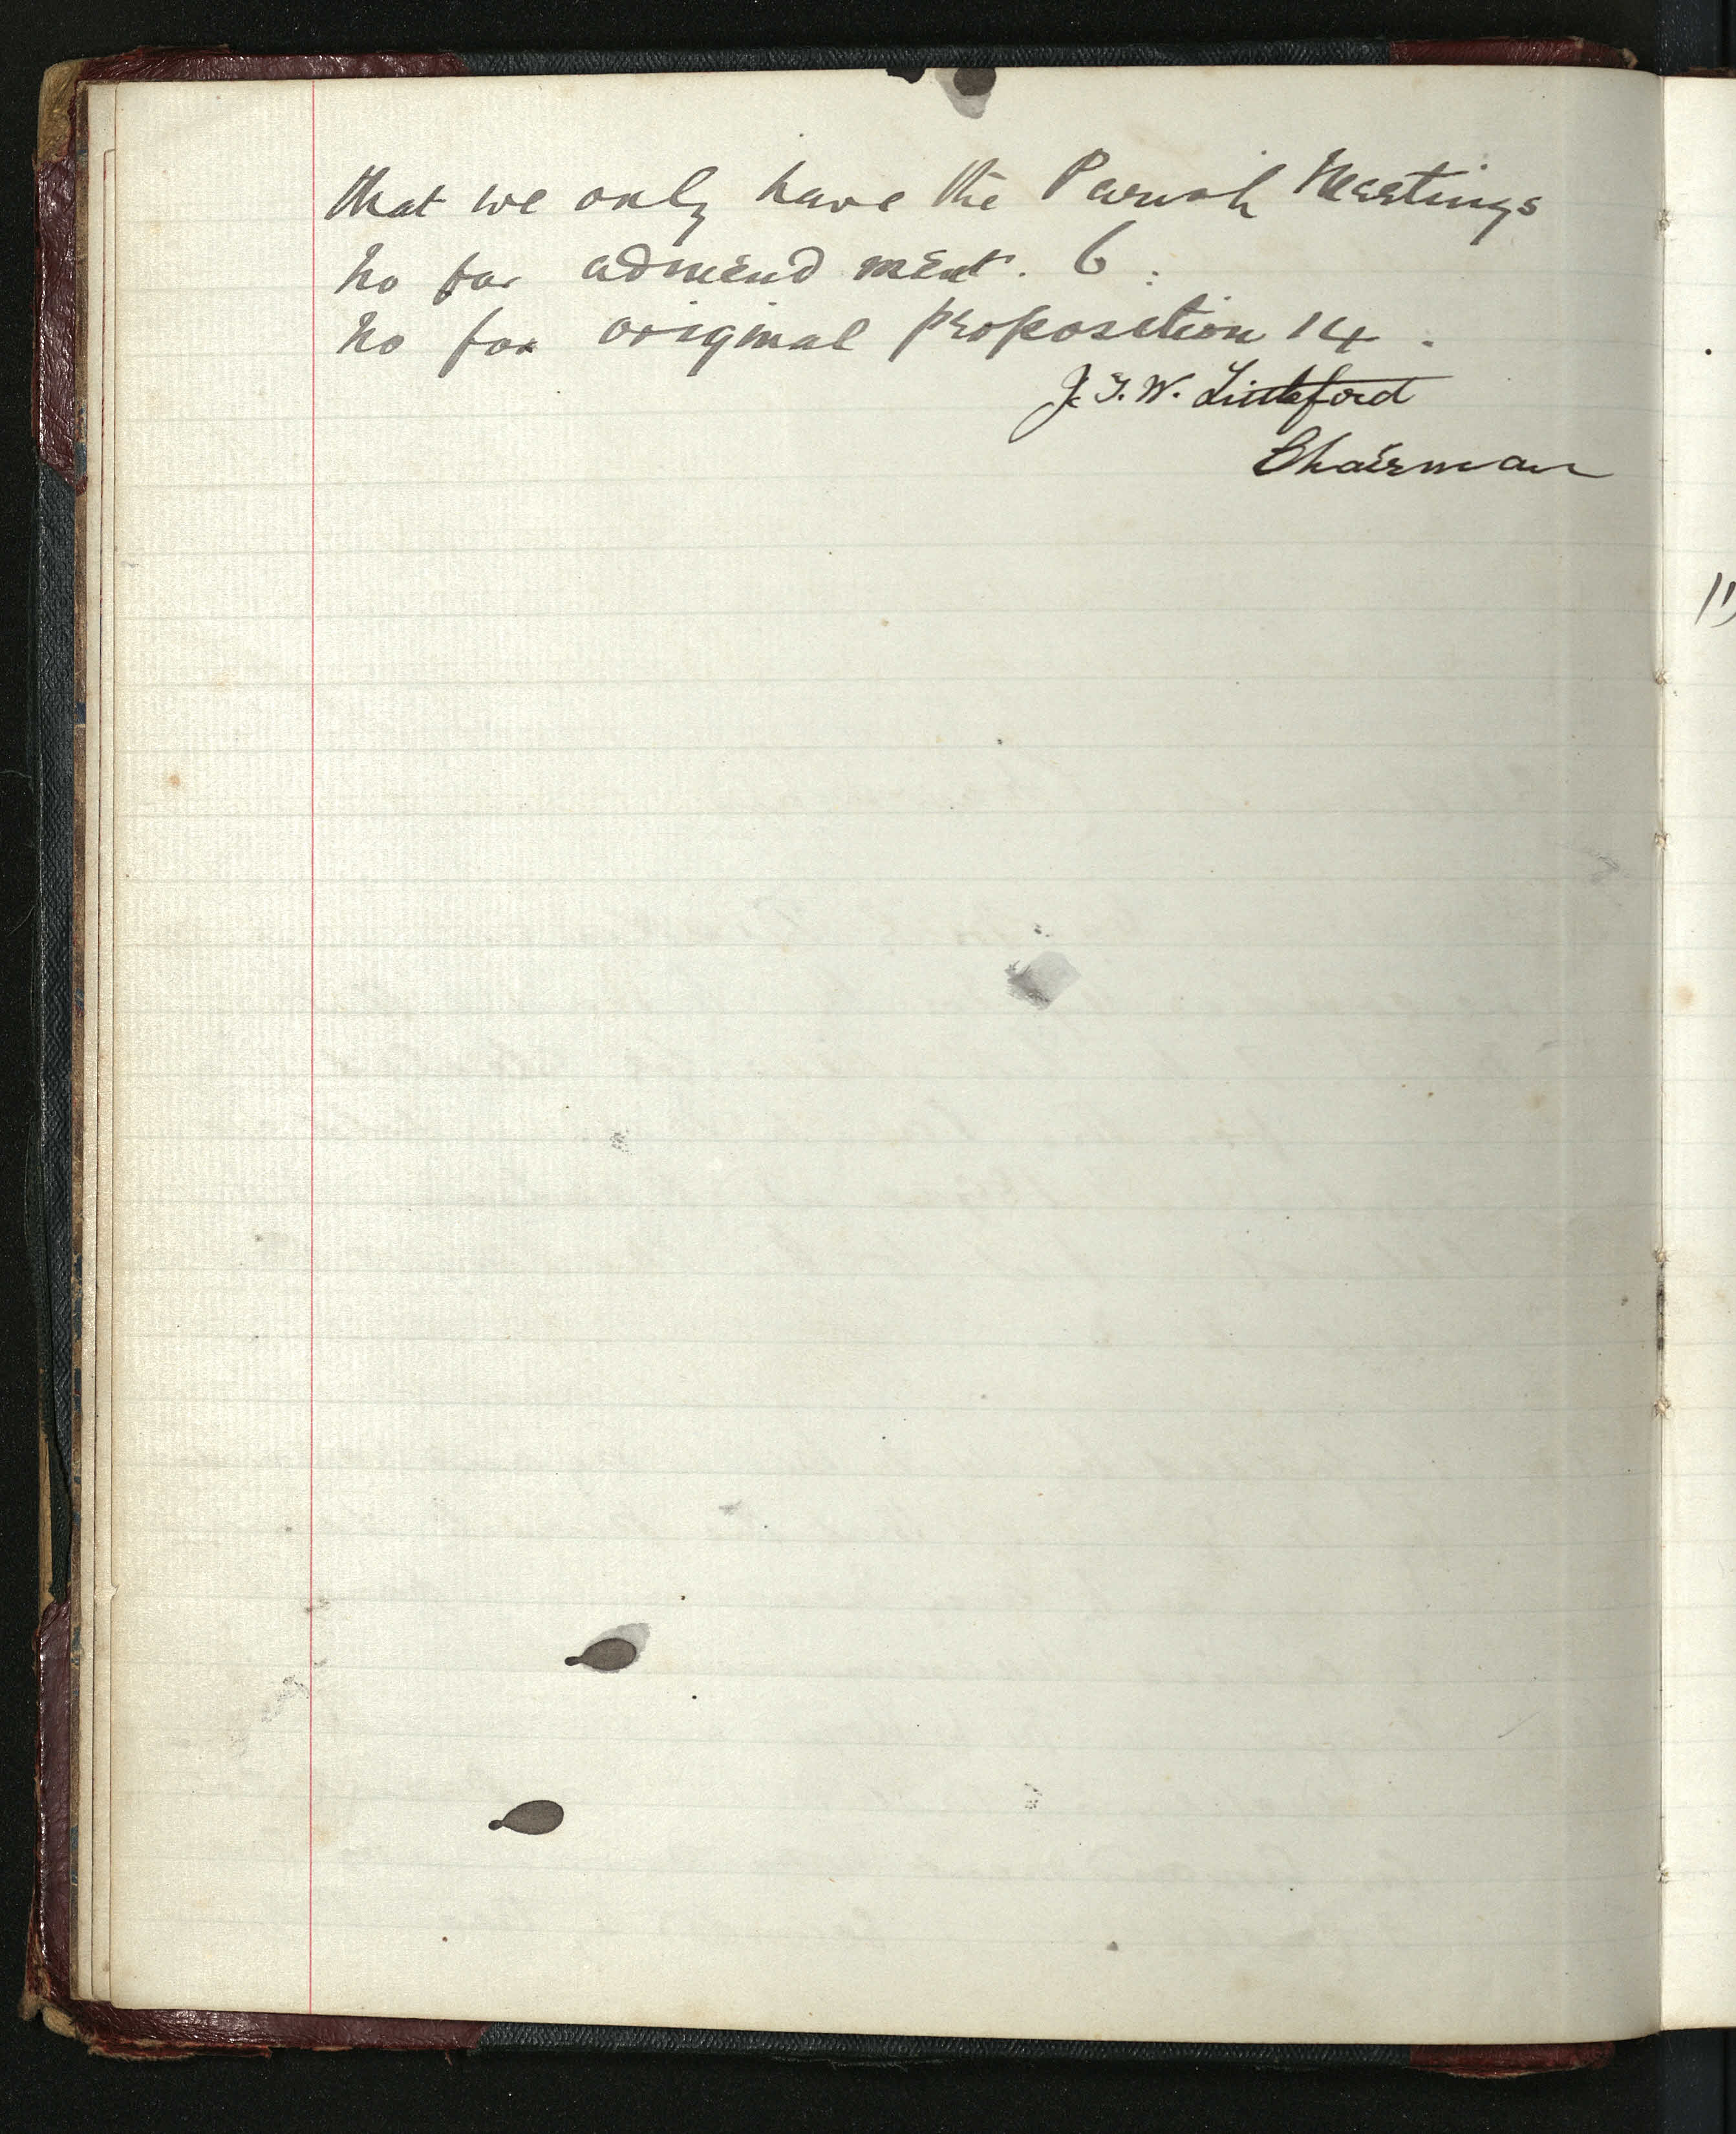 that we only have the Parish Meetings
No for admendment. 6.
No for original proposition 14.
J. T. W. Littleford
Chairman